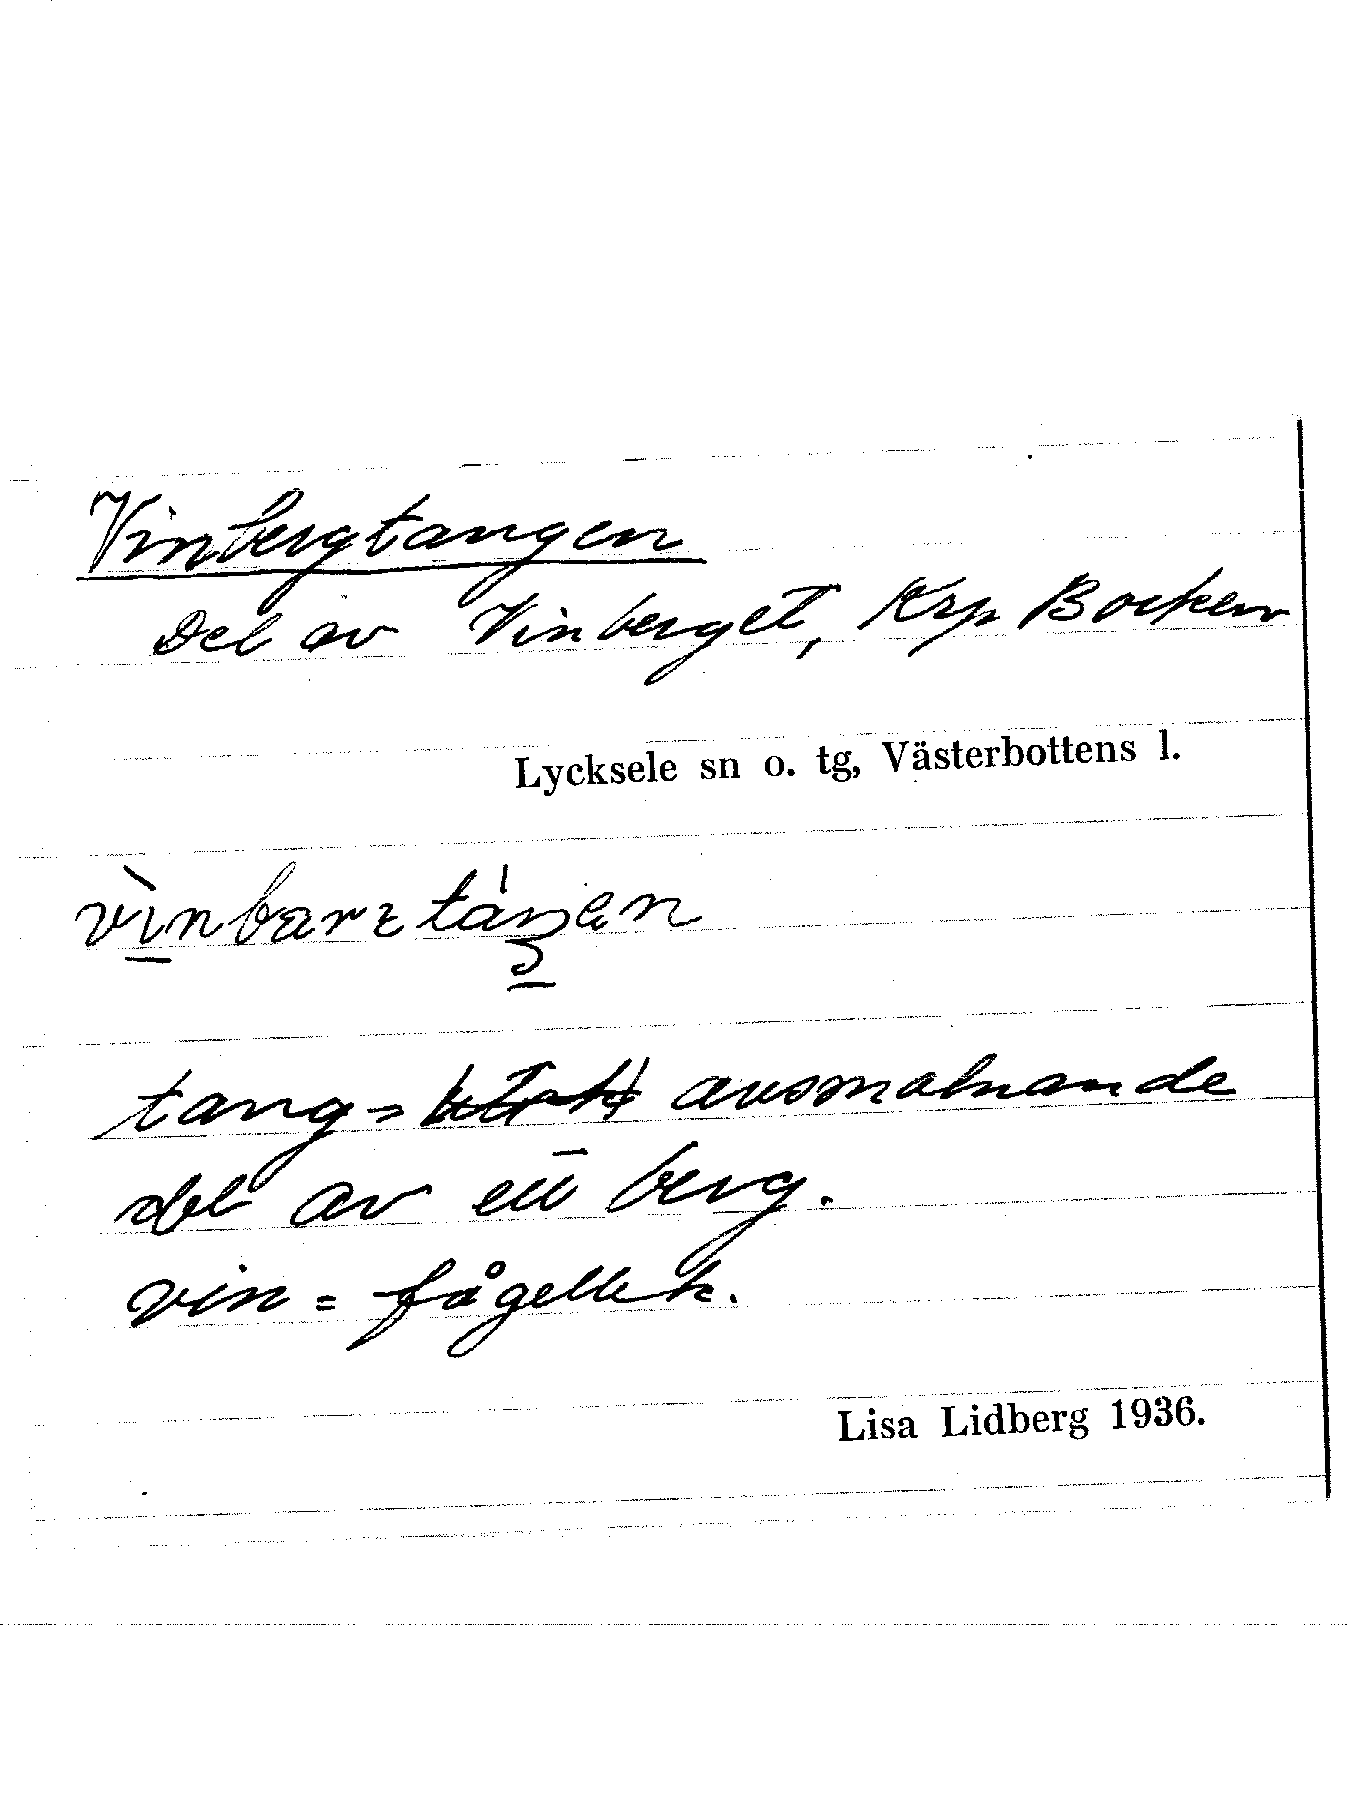 Vinbergtangen
Del av Vinberget, Krp Bocken
Lycksele sn o. tg, Västerbottens l.
tang = avsmalnande
del av ett berg.
vin = fågellek.
Lisa Lidberg 1936.